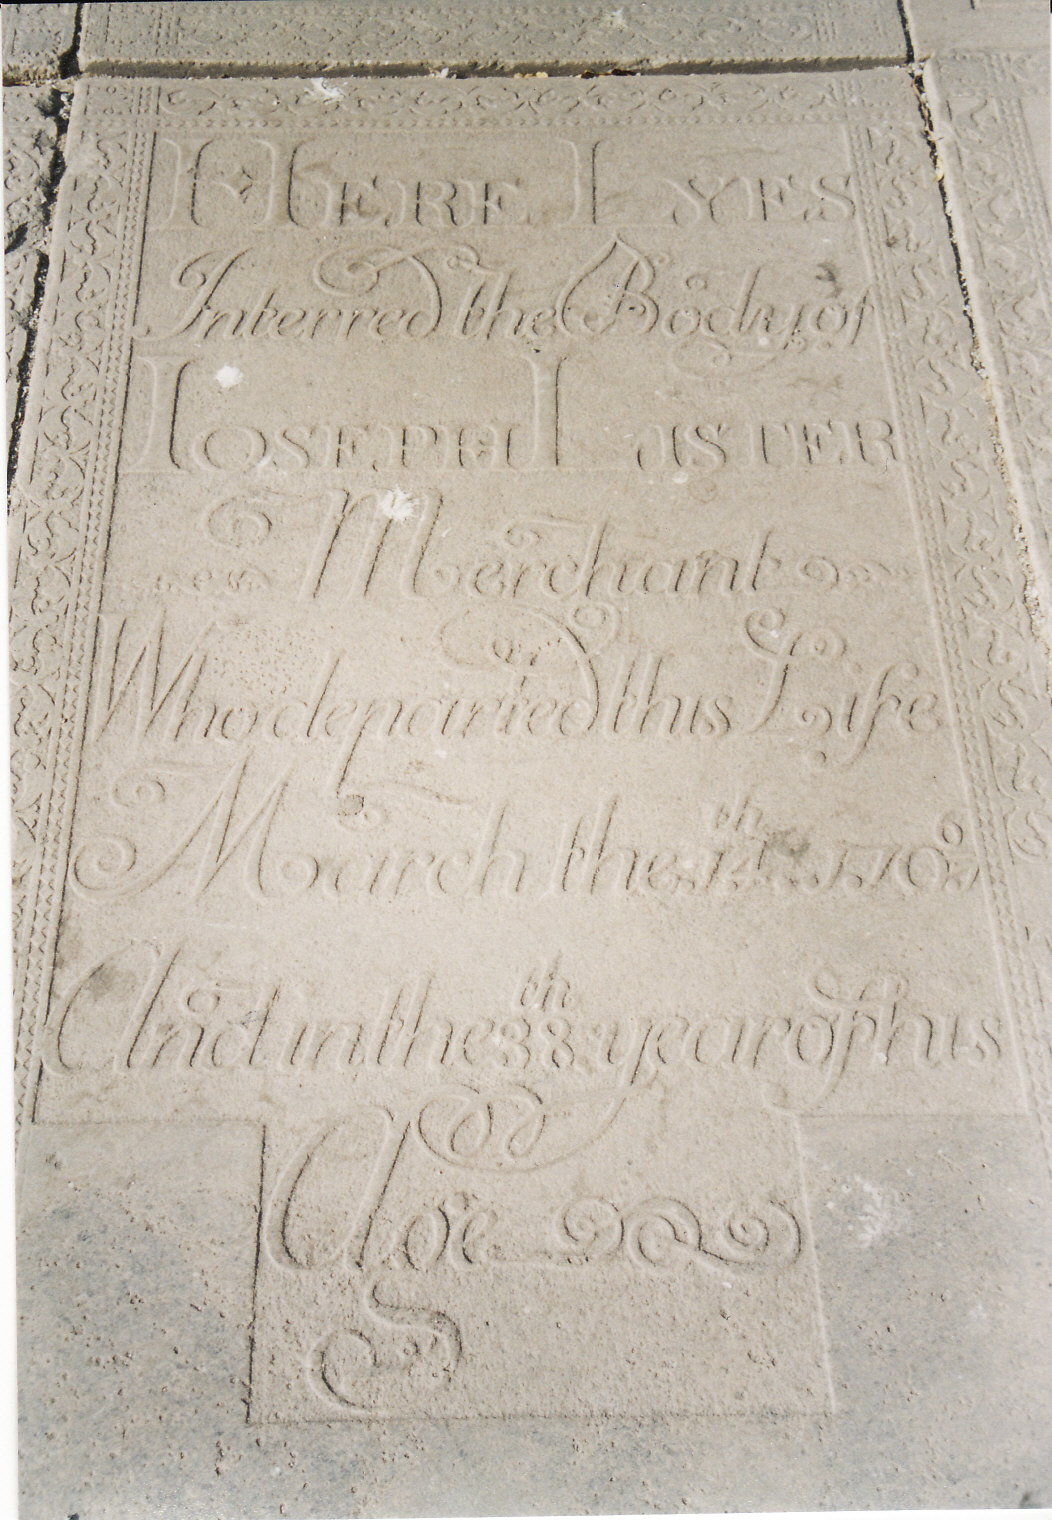 HERE LYES
Interred the Body of
IOSEPH LISTER
Merchant
Who departed this Life
March the 14th 1709
And in the 38th year of his
Age